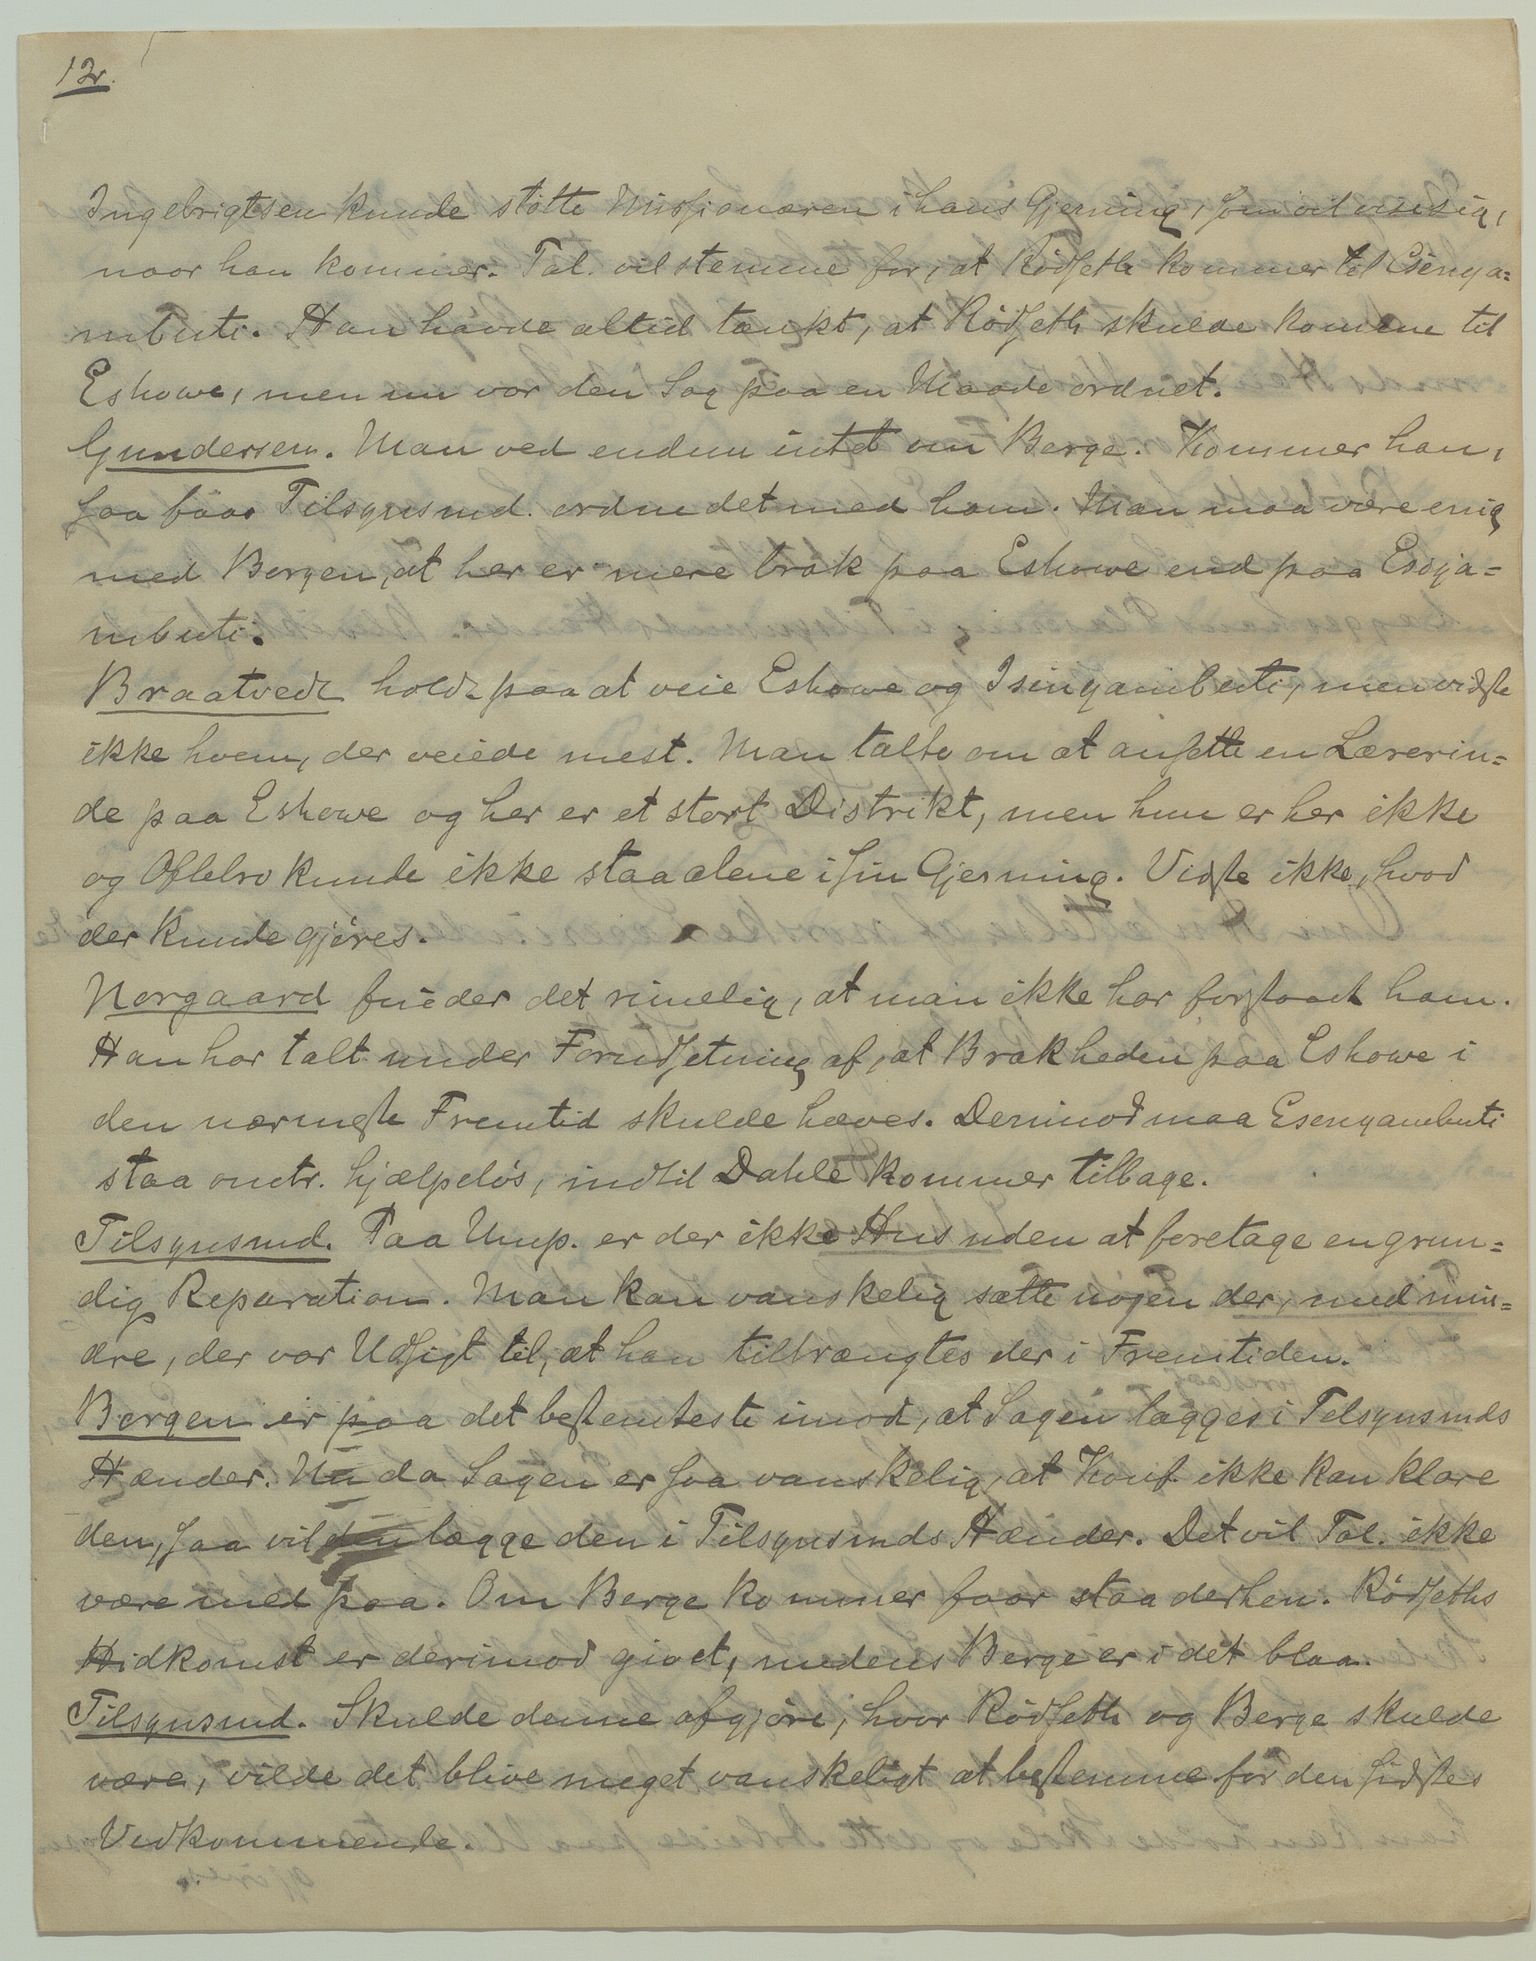 12.
Ingebrigtsen kunde støtte Missionæren i hans Gjerning, som vil vise sig,
naar han kommer. Tal. vil stemme for, at Rødseth kommer til Esinga=
mbuti. Han havde altid tænkt, at Rødseth skulde komme til
Eshowe, men nu var den Sag paa en Maade ordnet.
Gundersen. Man ved endnu intet om Berge. Kommer han,
saa faar Tilsynsmd. ordne det med ham. Man maa være enig
med Borgen, at her er mere brak paa Eshowe end paa Esinga=
mbuti.
Braatvedt holdt paa at veie Eshowe og Isingambuti, men vidste
ikke hvem, der veiede mest. Man talte om at ansette en Lærerin=
de paa Eshowe og her er et stort Distrikt, men hun er her ikke
og Oftebro kunde ikke staa alene i sin Gjerning. Vidste ikke, hvad
der kunde gjøres.
Norgaard finder det rimelig, at man ikke har forstaaet ham.
Han har talt under Forudsetning af, at Brakheden paa Eshowe i
den nærmeste Fremtid skulde hæves. Derimod maa Esengambuti
staa omtr. hjælpeløs, indtil Dahle kommer tilbage.
Tilsynsmd. Paa Ump. er der ikke Hus uden at foretage en grun=
dig Reparation. Man kan vanskelig sætte nogen der, med min=
dre, der var Udsigt til, at han tiltrængtes der i Fremtiden.
Borgen er paa det bestemteste imod, at Sagen lægges i Tilsynsmds
Hænder. Nu da Sagen er saa vanskelig, at Konf. ikke kan klare
den, saa vil den lægge den i Tilsynsmds Hænder. Det vil Tal. ikke
være med paa. Om Berge kommer faar staa derhen. Rødseths
Hidkomst er derimod givet, medens Berge er i det blaa.
Tilsynsmd. Skulde denne afgjøre, hvor Rødseth og Berge skulde
være, vilde det blive meget vanskeligt at bestemme for den sidstes
Vedkommende.